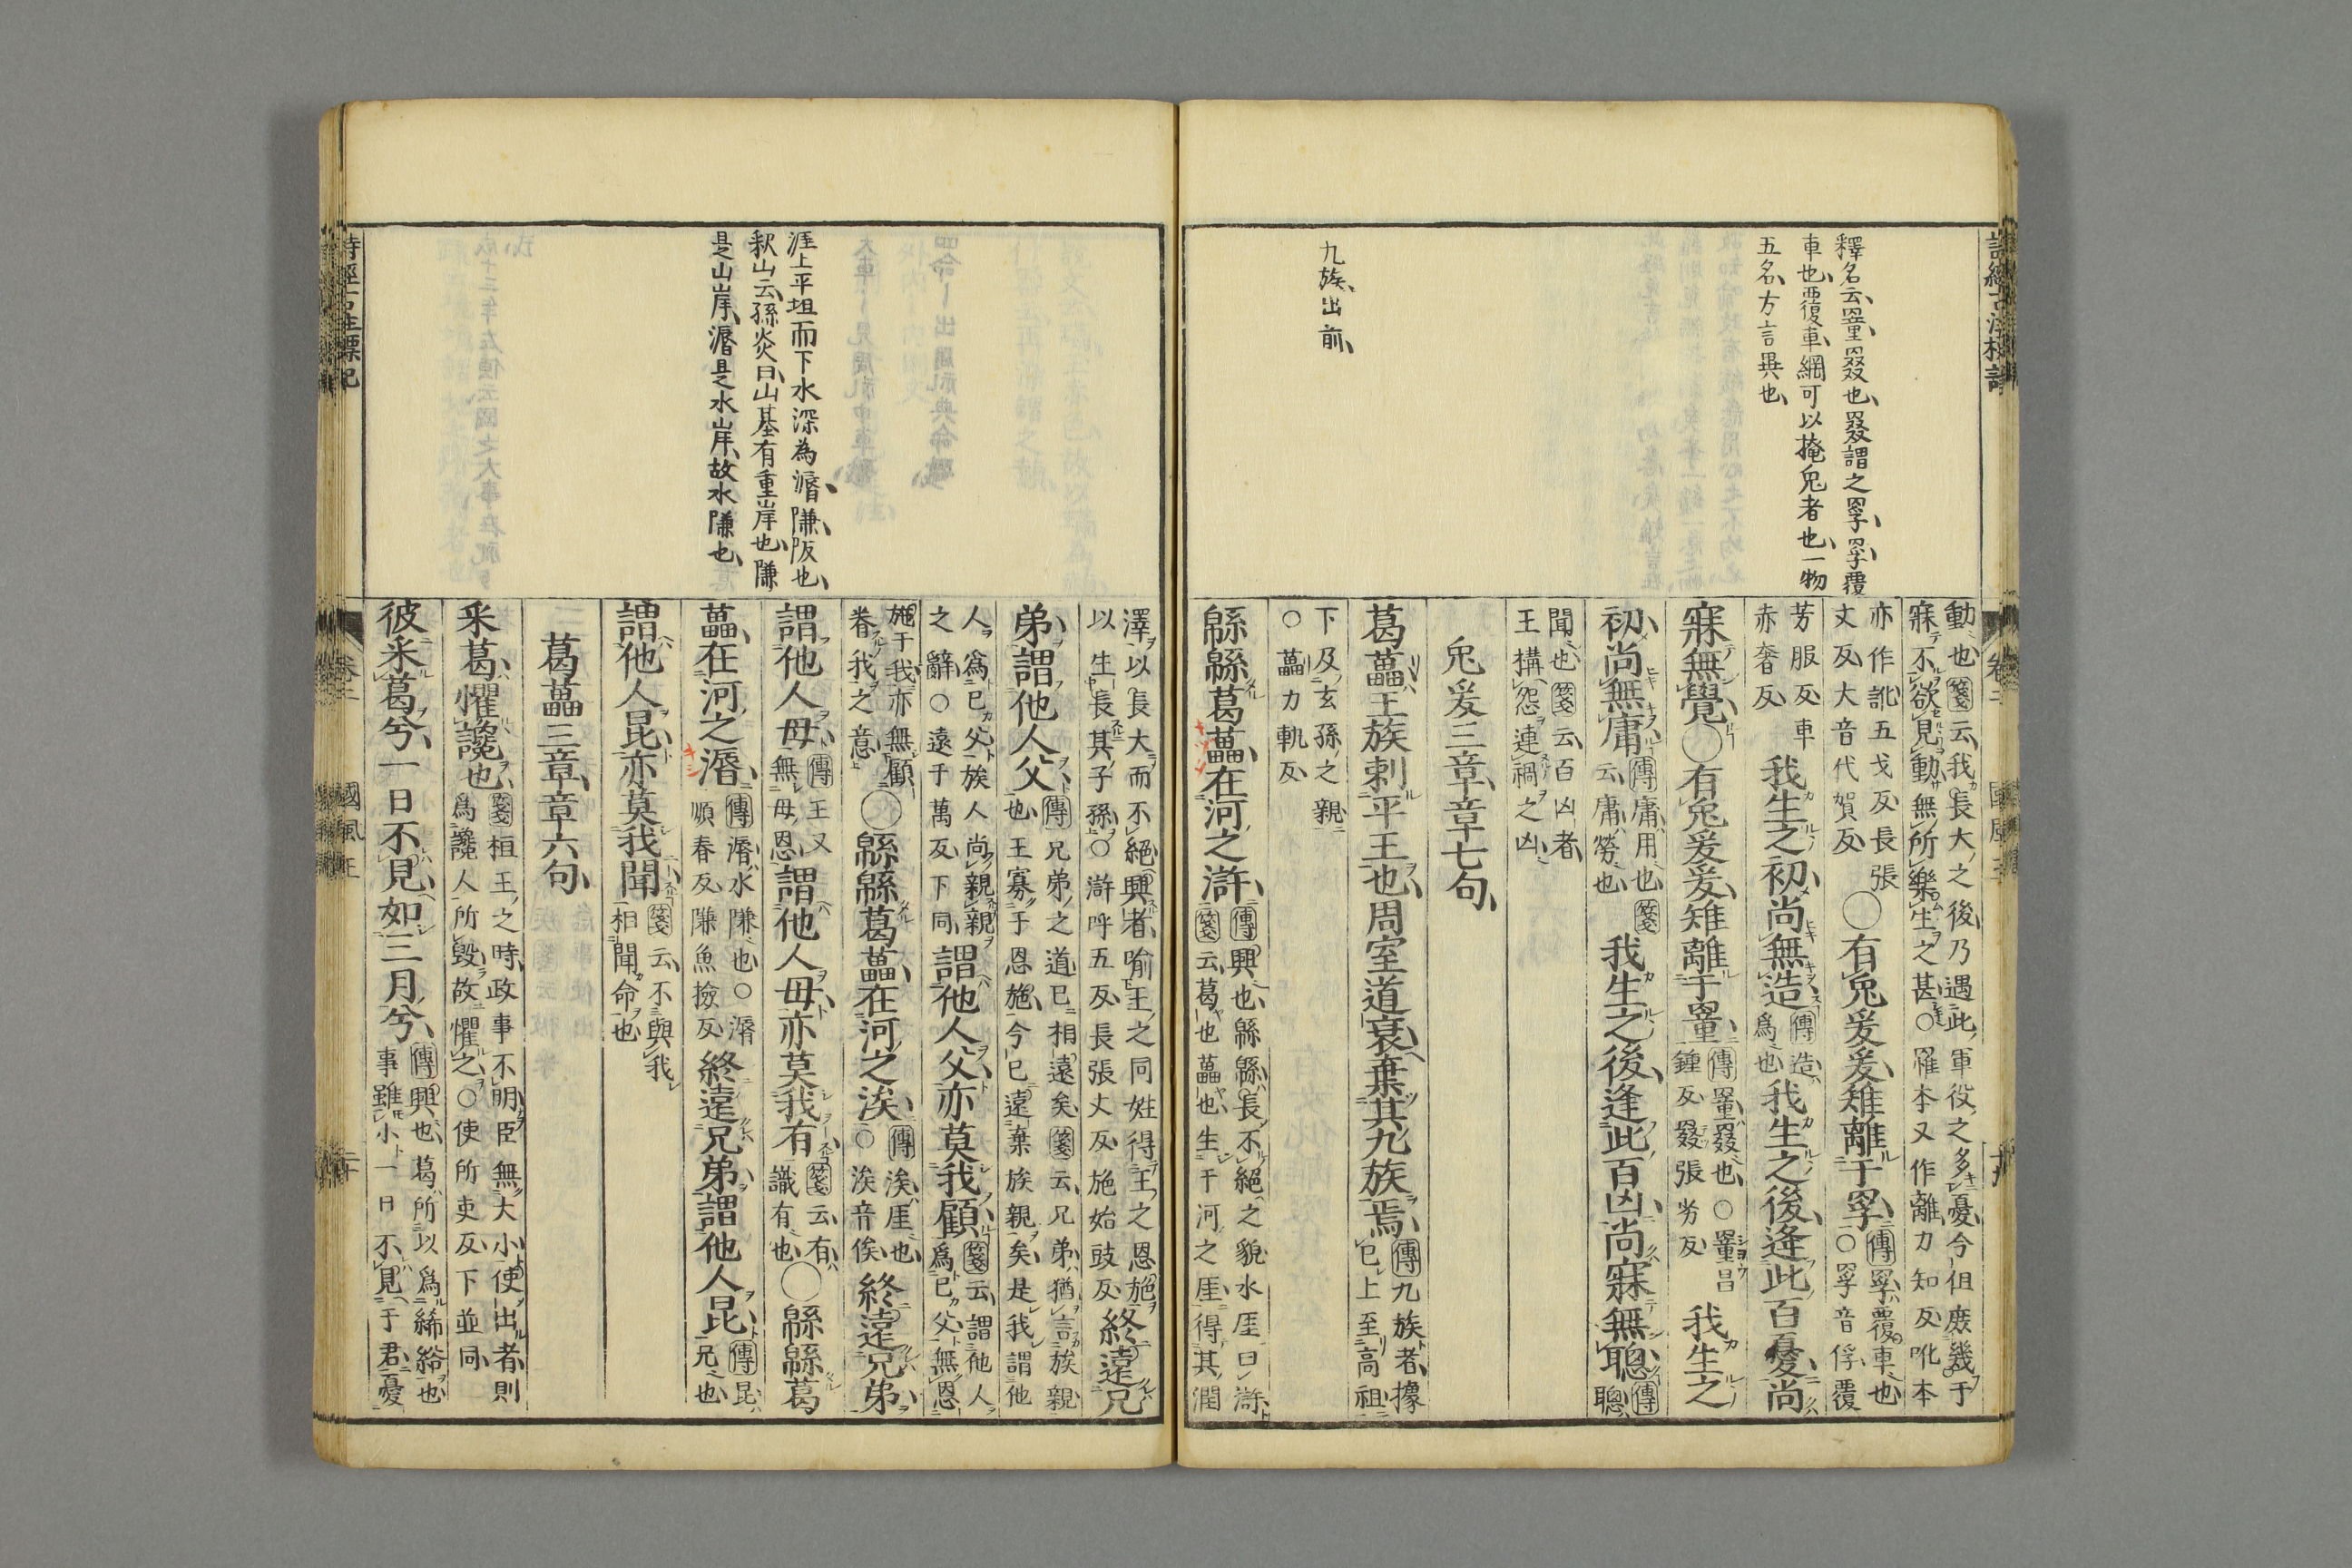 釋名云罿罬也罬謂之罦罦覆
車也覆車網可以掩兔者也一物
五名方言異也
九族出前
動也箋云我長大之後乃遇此軍役之多憂今但庶幾于
寐不欲見動無所樂生之甚○罹本又作離力知反吪本
亦作訛五戈反長張
丈反大音代賀反
○有兔爰爰雉離于罦
傳罦覆車也
○罦音俘覆
芳服反車
赤奢反
我生之初尚無造
傳造
爲也
我生之後逢此百憂尚
寐無覺○有兔爰爰雉離于罿
傳罿罬也○罿昌
鍾反罬張劣反
我生之
初尚無庸
傳庸用也箋
云庸勞也
我生之後逢此百凶尚寐無聰
傳
聰
聞也箋云百凶者
王搆怨連禍之凶
兔爰三章章七句
葛藟王族刺平王也周室道衰棄其九族焉
傳九族者據
己上至高祖
下及玄孫之親
○藟力軌反
緜緜葛藟在河之滸
傳興也緜緜長不絕之貌水厓曰滸
箋云葛也藟也生于河之厓得其潤
涯上平坦而下水深為漘隒阪也
釈山云孫炎曰山基有重岸也隒
是山岸漘是水岸故水隒也
澤以長大而不絕興者喻王之同姓得王之恩施
以生長其子孫○滸呼五反長張丈反施始豉反
終遠兄
弟謂他人父
傳兄弟之道已相遠矣箋云兄弟猶言族親
也王寡于恩施今已遠棄族親矣是我謂他
人爲己父族人尚親親
之辭○遠于萬反下同
謂他人父亦莫我顧
箋云謂他人
爲己父無恩
施于我亦無顧
眷我之意
○緜緜葛藟在河之涘
傳涘厓也
○涘音俟
終遠兄弟
謂他人母
傳王又
無母恩
謂他人母亦莫我有
箋云有
識有也
○緜緜葛
藟在河之漘
傳漘水隒也○漘
順春反隒魚撿反
終遠兄弟謂他人昆
傳昆
兄也
謂他人昆亦莫我聞
箋云不與我
相聞命也
葛藟三章章六句
采葛懼讒也
箋桓王之時政事不明臣無大小使出者則
爲讒人所毀故懼之○使所吏反下並同
彼采葛兮一日不見如三月兮
傳興也葛所以爲絺綌也
事雖小一日不見于君憂
卷二
國風王
二十